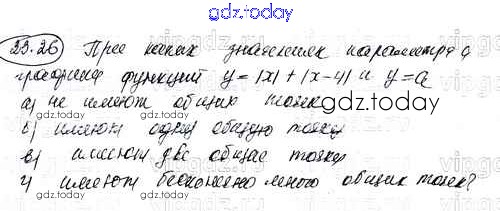 gdz.today
23.26 При каких значениях параметра a
графики функций y=|x|+|x-4| и y=a
а) не имеют общих точек gdz.today
б) имеют одну общую точку
в) имеют две общие точки
г) имеют бесконечно много общих точек?
gdz.today